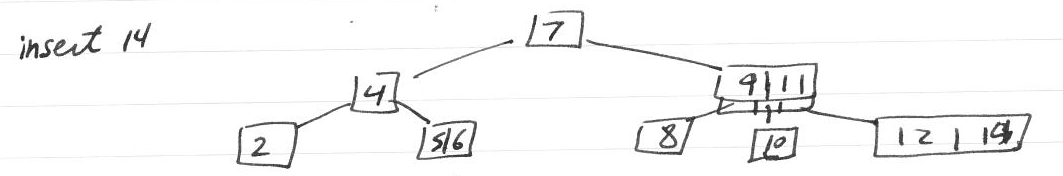 insert 14
7
4
9|11
2
5|6
8
10
12 | 14